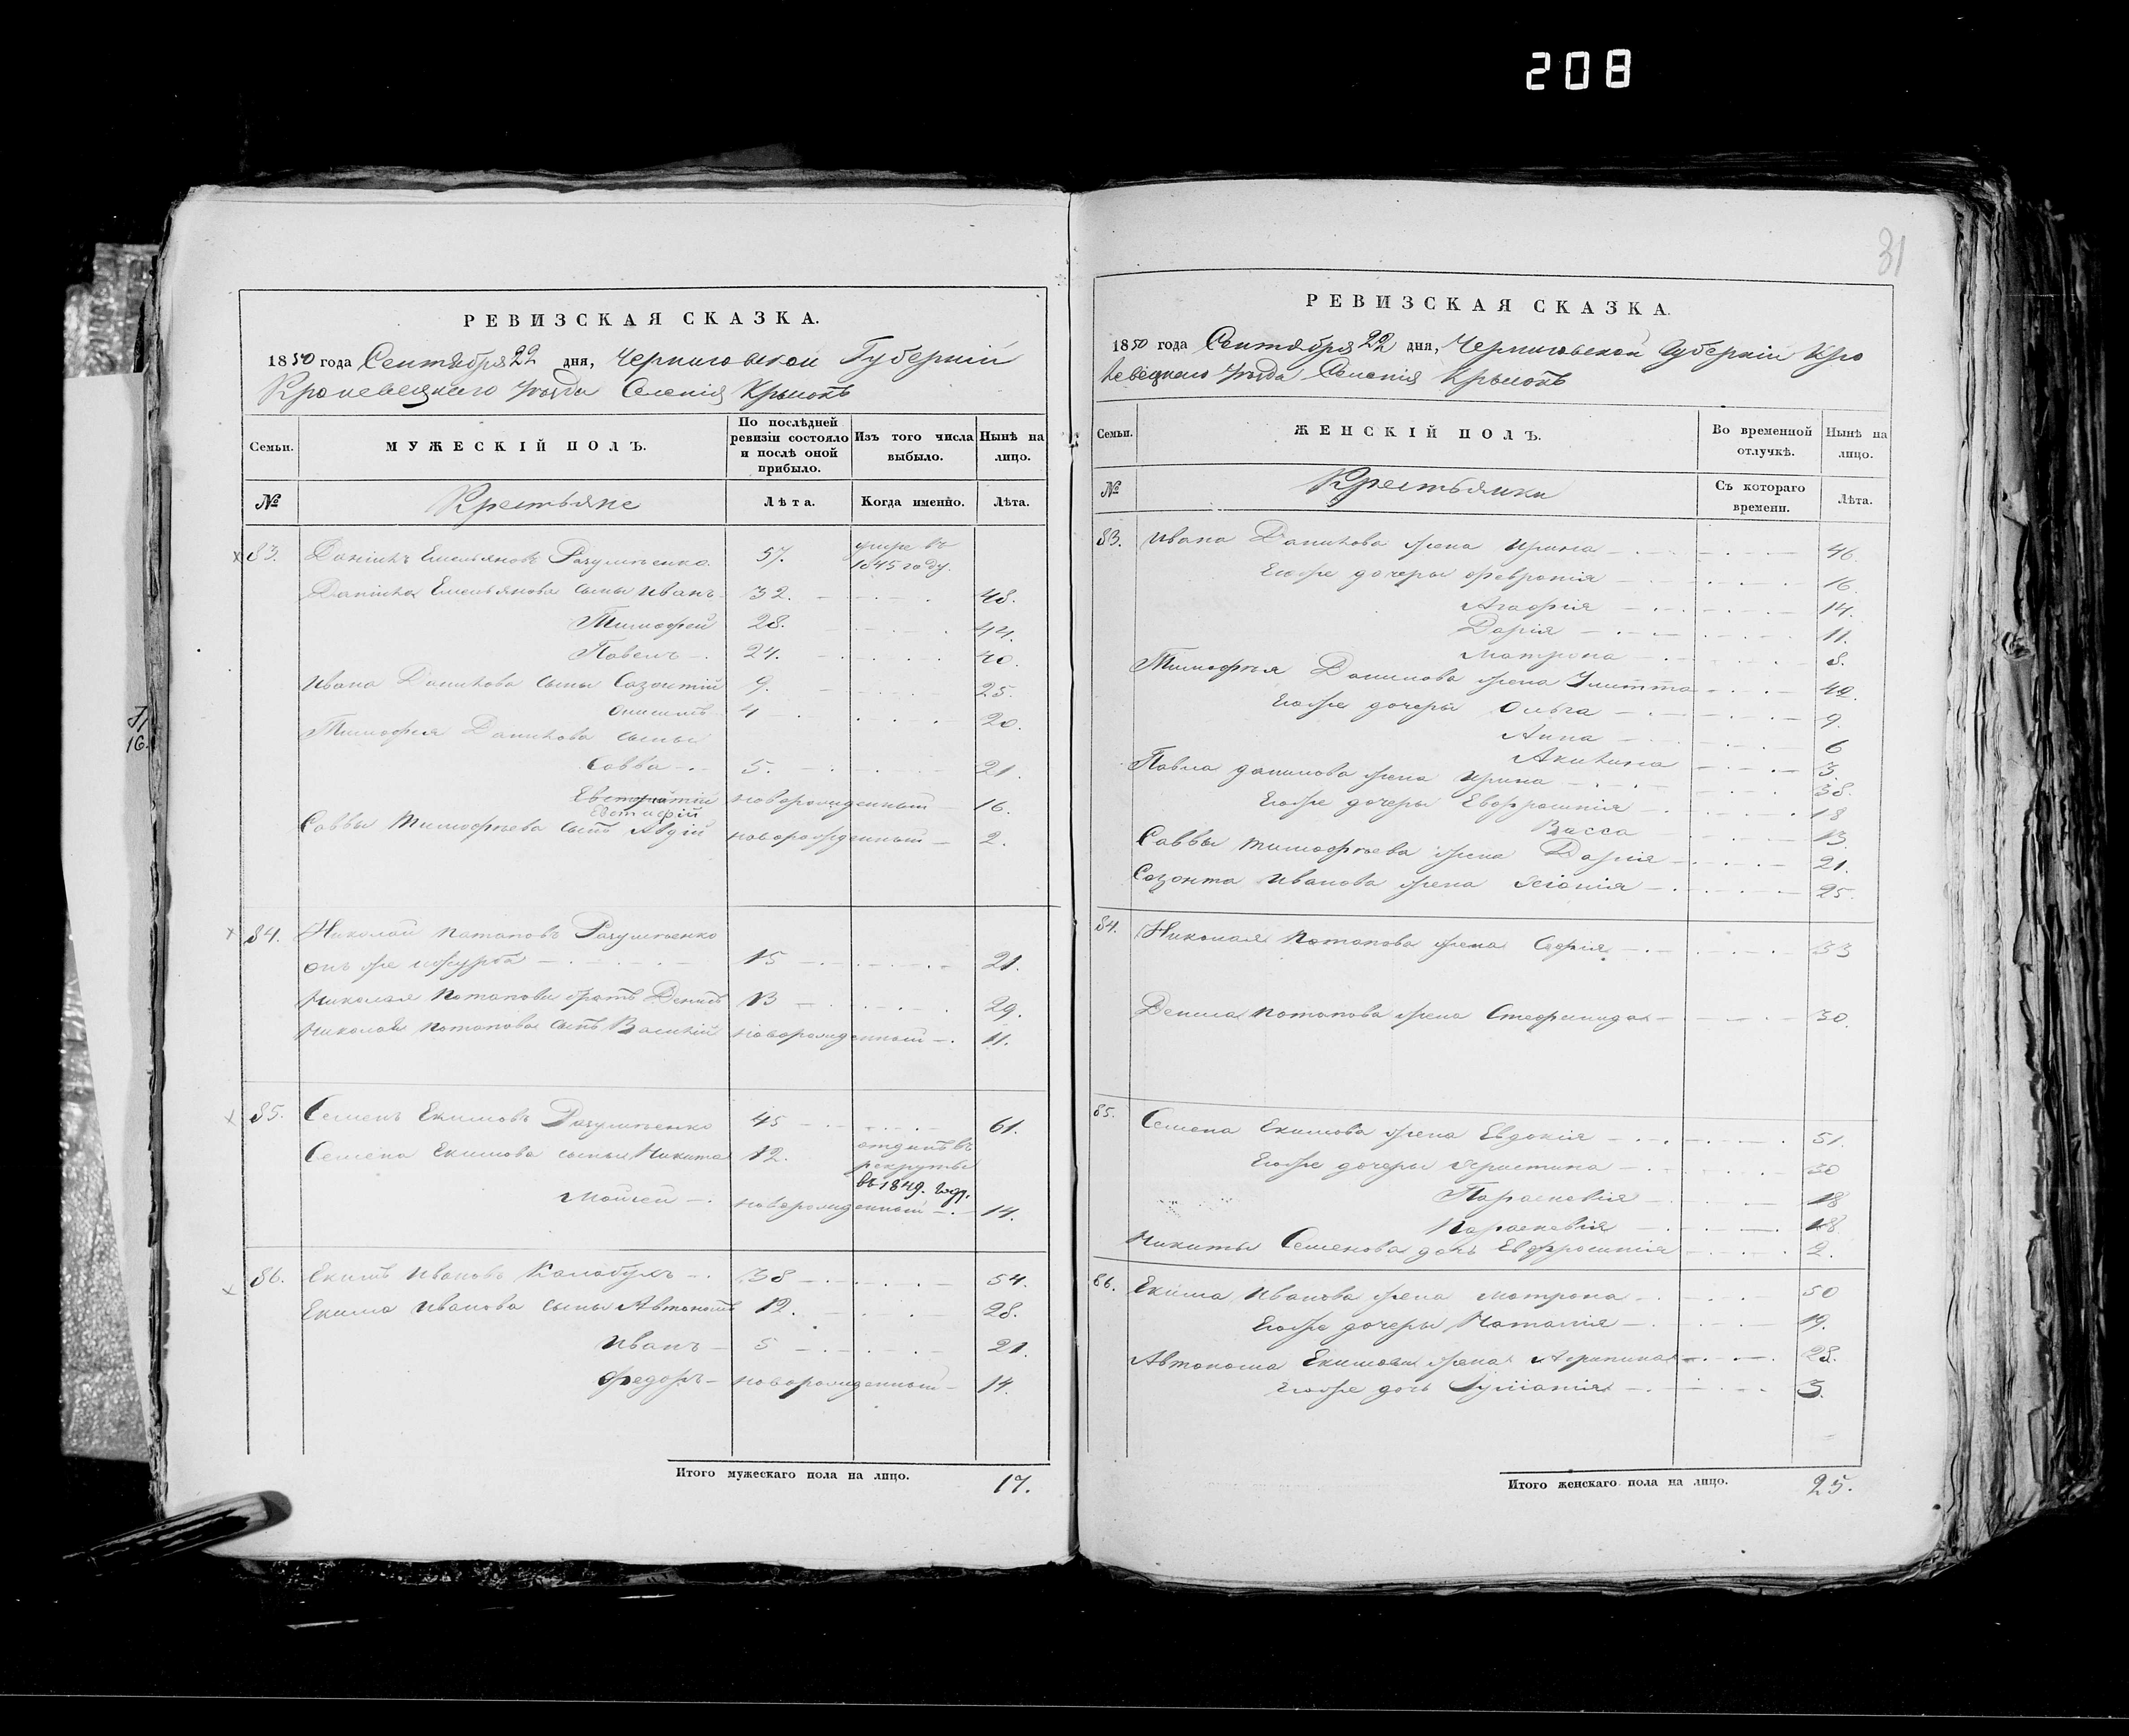 208
31
РЕВИЗСКАЯ СКАЗКА.
1850 года Сентября 22 дня, Черниговской Губерній
Кролевецкаго уѣзда Селенія
Семьи. МУЖЕСКІЙ ПОЛЪ. По послѣдней ревизіи состояло и послѣ оной прибыло. Изъ того числа выбыло. Нынѣ на лицо.
№ Крестьяне Лѣта. Когда именно. Лѣта.
83. Даніилъ Емельяновъ Разумѣенко 57. умре въ 1845 году.
Даніила Емельянова сыны Иванъ 32. 48.
Тимофей 28. 44.
Павелъ 24. 40.
Ивана Данилова сыны Созонтій 9. 25.
Онисимъ 4 20.
Тимофея Данилова сыны
Савва 5. 21.
новорожденный 16.
Евстафій
Саввы Тимофѣева сынъ Авдій новорожденный 2.
84. Николай Потаповъ Разумѣенко
онъ же 15 21.
Николая Потапова братъ Денисъ 13 29.
Николая Потапова сынъ Василій новорожденный 11.
85. Семенъ Екимовъ Разумѣенко 45 61.
Семена Екимова сыны Никита 12. отданъ въ рекруты въ 1849. году.
Моисей новорожденный 14.
86. Екимъ Ивановъ 38 54.
Екима Иванова сыны Автономъ 12. 28.
Иванъ 5 21.
Федоръ новорожденный 14.
Итого мужескаго пола на лицо. 17.
РЕВИЗСКАЯ СКАЗКА.
1850 года Сентября 22 дня, Черниговской Губерніи Кро
левецкаго уѣзда Селенія
Семьи. ЖЕНСКІЙ ПОЛЪ. Во временной отлучкѣ. Нынѣ на лицо.
№ Крестьянки Съ котораго времени. Лѣта.
83. Ивана Данилова жена Ирина 46.
Егоже дочери Февронія 16.
Агафія 14.
Дарія 11.
Матрона 8.
Тимофѣя Данилова жена Улитта 40.
Егоже дочери Ольга 9.
Анна 6
Акилина 3.
Павла Данилова жена Ирина 38.
Егоже дочери Евфросинія 18
Васса 13.
Саввы Тимофѣева жена Дарія 21.
Созонта Иванова жена 25.
84. Николая Потапова жена Софія 33
Дениса Потапова жена Стефанида 30.
85. Семена Екимова жена Евдокія 51.
Егоже дочери Христина 20
Параскевія 18
Параскевія 18
Никиты Семенова дочь Евфросинія 2.
86. Екима Иванова жена Матрона 50
Егоже дочери Наталія 19.
Автонома Екимова жена Агрипина 28.
Егоже дочь Іуліанія 3.
Итого женскаго пола на лицо. 25.